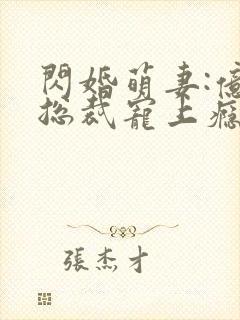 閃婚萌妻:億
總裁寵上癮
張杰才